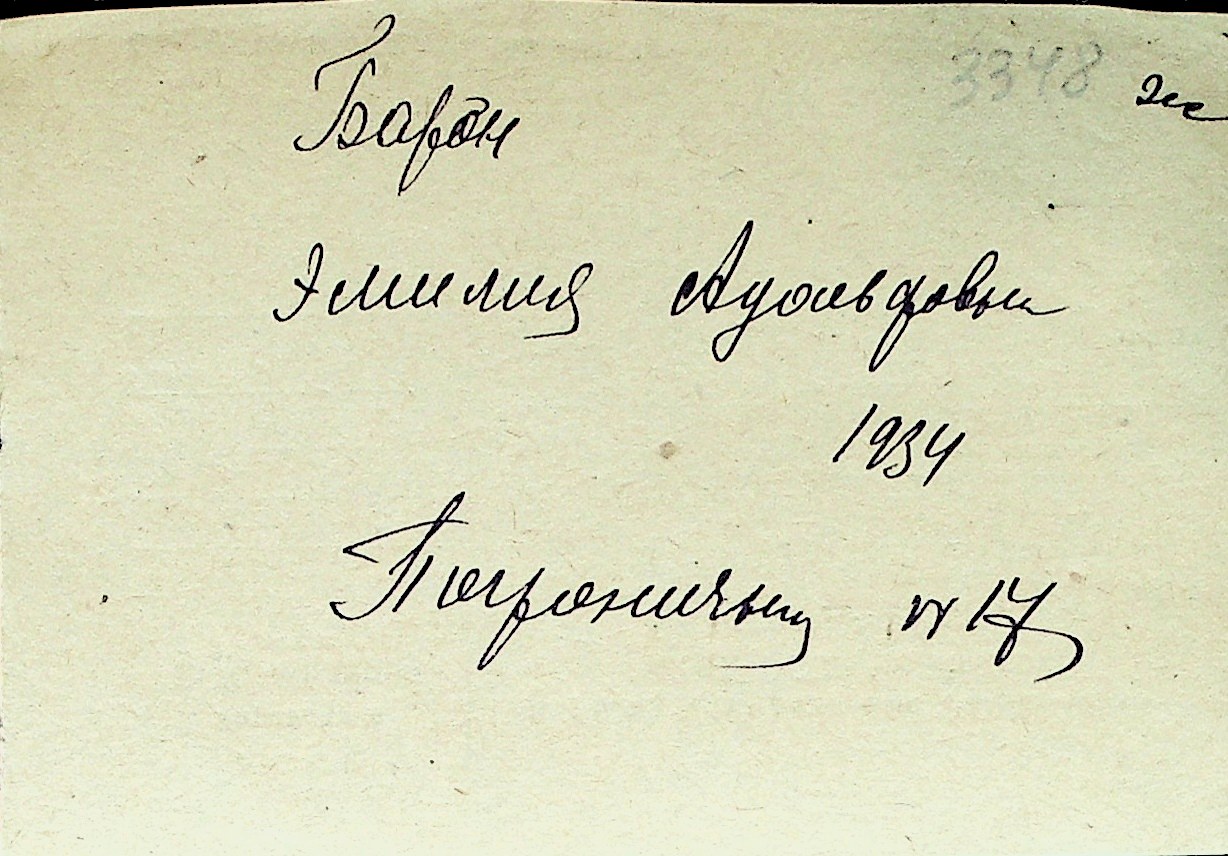 3348 ж
Барон
Эмилия Адольфовна
1934
Пограничная № 17